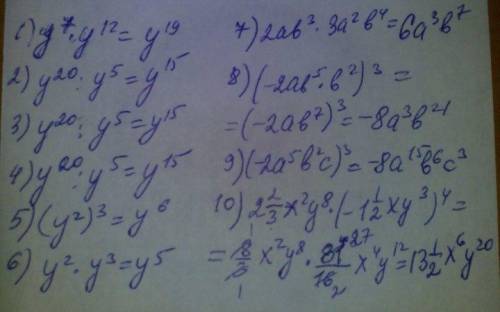 1) y⁷ · y¹² = y¹⁹
2) y²⁰ : y⁵ = y¹⁵
3) y²⁰ : y⁵ = y¹⁵
4) y²⁰ : y⁵ = y¹⁵
5) (y²)³ = y⁶
6) y² · y³ = y⁵
7) 2ab³ · 3a²b⁴ = 6a³b⁷
8) (-2ab⁵ · b²)³ =
= (-2ab⁷)³ = -8a³b²¹
9) (-2a⁵b²c)³ = -8a¹⁵b⁶c³
10) 2 2/3 x²y⁸ · (-1 1/2 xy³)⁴ =
= 8/3 x²y⁸ · 81/16 x⁴y¹² = 13 1/2 x⁶y²⁰